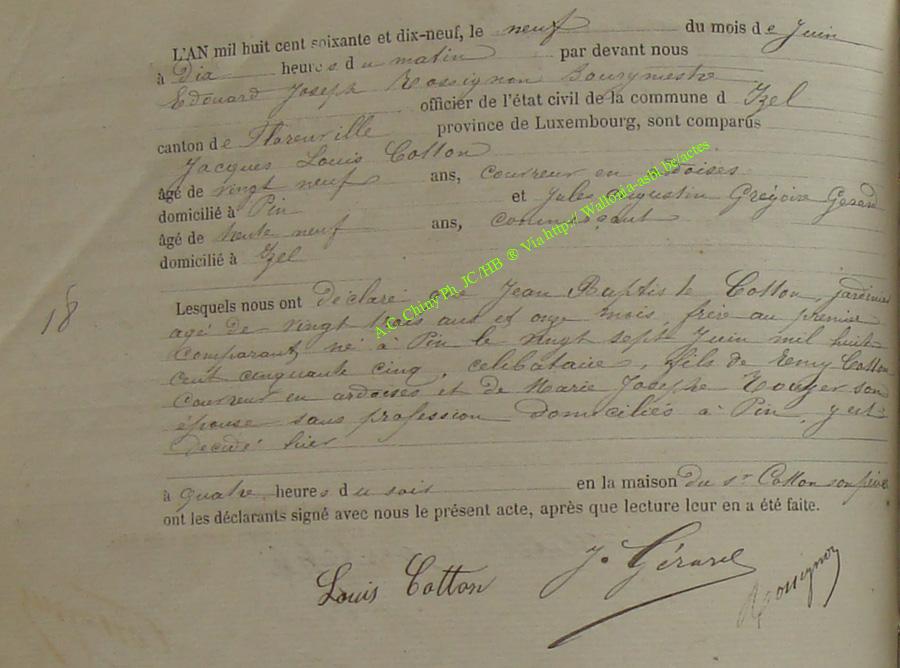 L'AN mil huit cent soixante et dix-neuf, le neuf du mois de Juin
à Dix heures du matin par devant nous
Edouard Joseph Rossignon Bourgmestre
officier de l'état civil de la commune d Izel
canton de Florenville province de Luxembourg, sont comparus
Jacques Louis Cotton
âgé de vingt neuf ans, couvreur en ardoises
domicilié à Pin et Jules Augustin Grégoire Gerard
âgé de trente neuf ans, commerçant
domicilié à Izel
18
Lesquels nous ont déclaré que Jean Baptiste Cotton, jardinier
agé de vingt trois ans et onze mois, frère au premier
comparant né à Pin le vingt sept Juin mil huit
cent cinquante cinq, celibataire, fils de Remy Cotton
couvreur en ardoises et de Marie Josephe son
épouse sans profession domiciliés à Pin, y est
decedé hier
à quatre heures du soir en la maison du sr Cotton son père
ont les déclarants signé avec nous le présent acte, après que lecture leur en a été faite.
Louis Cotton J. Gérard Rossignon
A.C. Chiny Ph. JC/HB ® Via http:// Wallonia-asbl.be/actes